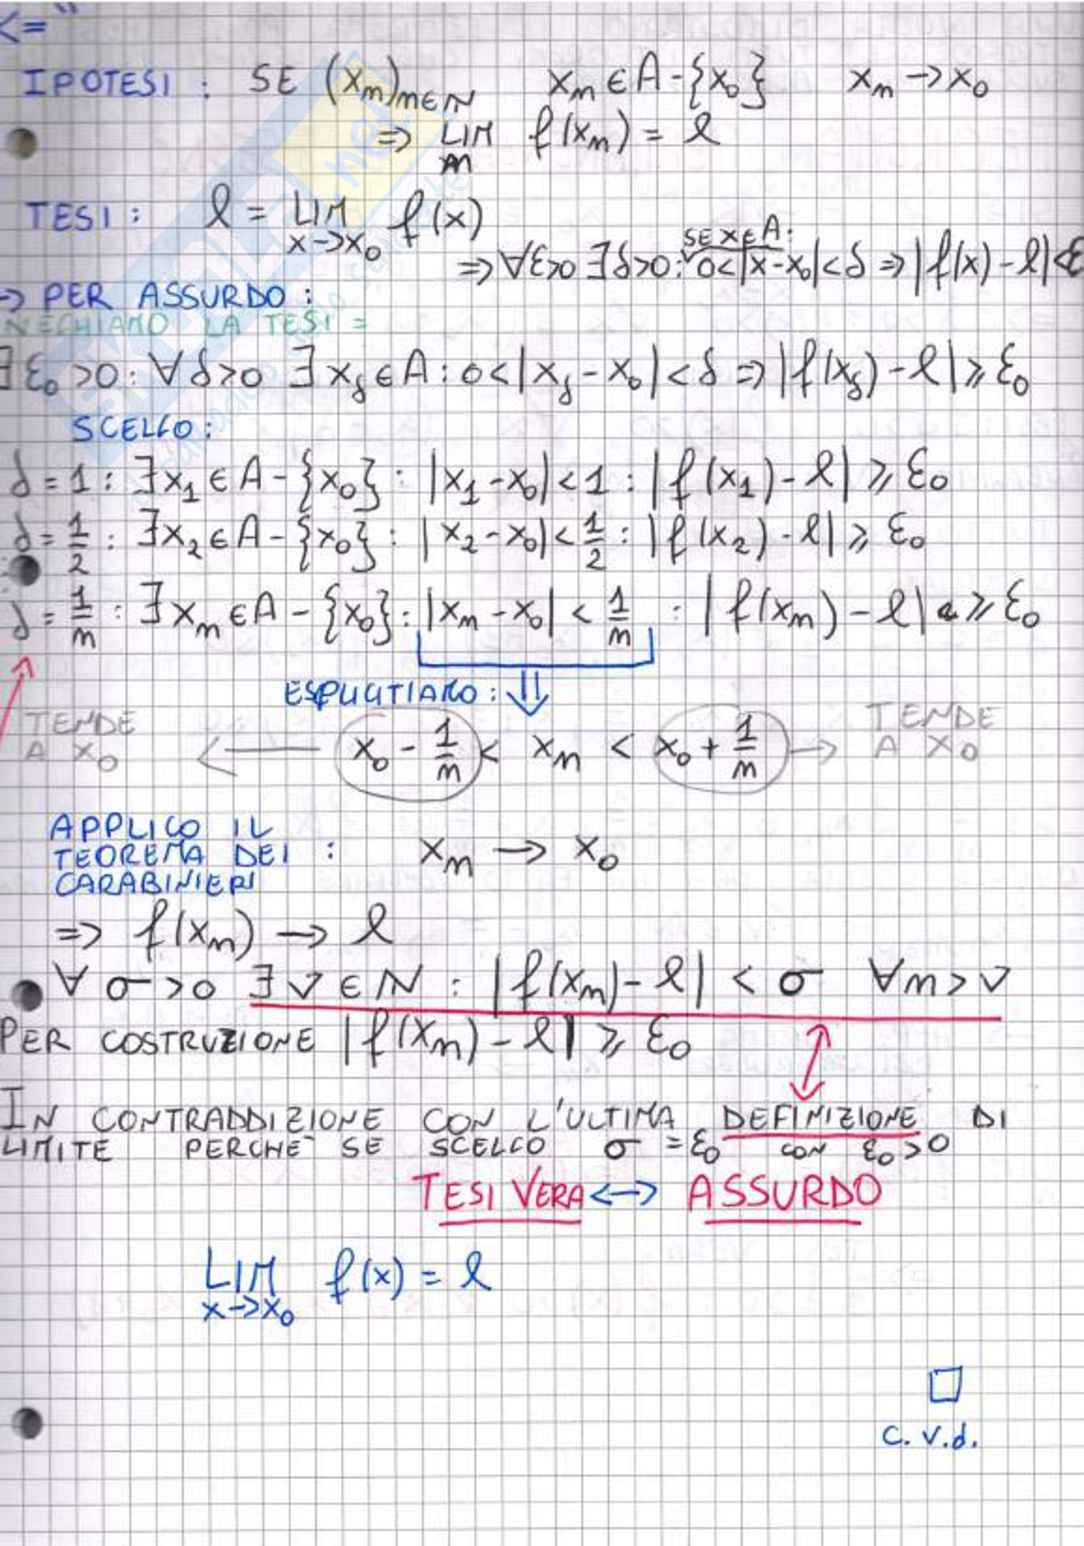 <="
IPOTESI : SE (xₙ)ₙ∈N xₙ ∈ A - {x₀} xₙ → x₀
=> LIM f(xₙ) = l
n
TESI : l = LIM f(x)
x→x₀
SE X∈A:
=> ∀ε>0 ∃δ>0 : 0<|x-x₀|<δ => |f(x)-l|<ε
→ PER ASSURDO :
NEGHIAMO LA TESI =
∃ε₀>0 : ∀δ>0 ∃x_δ∈A : 0<|x_δ-x₀|<δ => |f(x_δ)-l| ⩾ ε₀
SCELGO :
δ = 1 : ∃x₁ ∈ A - {x₀} : |x₁-x₀|<1 : |f(x₁)-l| ⩾ ε₀
δ = 1/2 : ∃x₂∈A - {x₀} : |x₂-x₀|<1/2 : |f(x₂)-l| ⩾ ε₀
δ = 1/n : ∃xₙ∈A - {x₀} : |xₙ-x₀| < 1/n : |f(xₙ)-l| ⩾ ε₀
ESPLICITIAMO : ⇓
TENDE A X₀ ← x₀ - 1/n < xₙ < x₀ + 1/n → TENDE A X₀
APPLICO IL
TEOREMA DEI : xₙ → x₀
CARABINIERI
=> f(xₙ) → l
∀ σ>0 ∃ ν ∈ N : |f(xₙ)-l| < σ ∀n>ν
PER COSTRUZIONE |f(xₙ)-l| ⩾ ε₀
IN CONTRADDIZIONE CON L'ULTIMA DEFINIZIONE DI
LIMITE PERCHE' SE SCELGO σ = ε₀ CON ε₀>0
TESI VERA <-> ASSURDO
LIM f(x) = l
x→x₀
c.v.d.